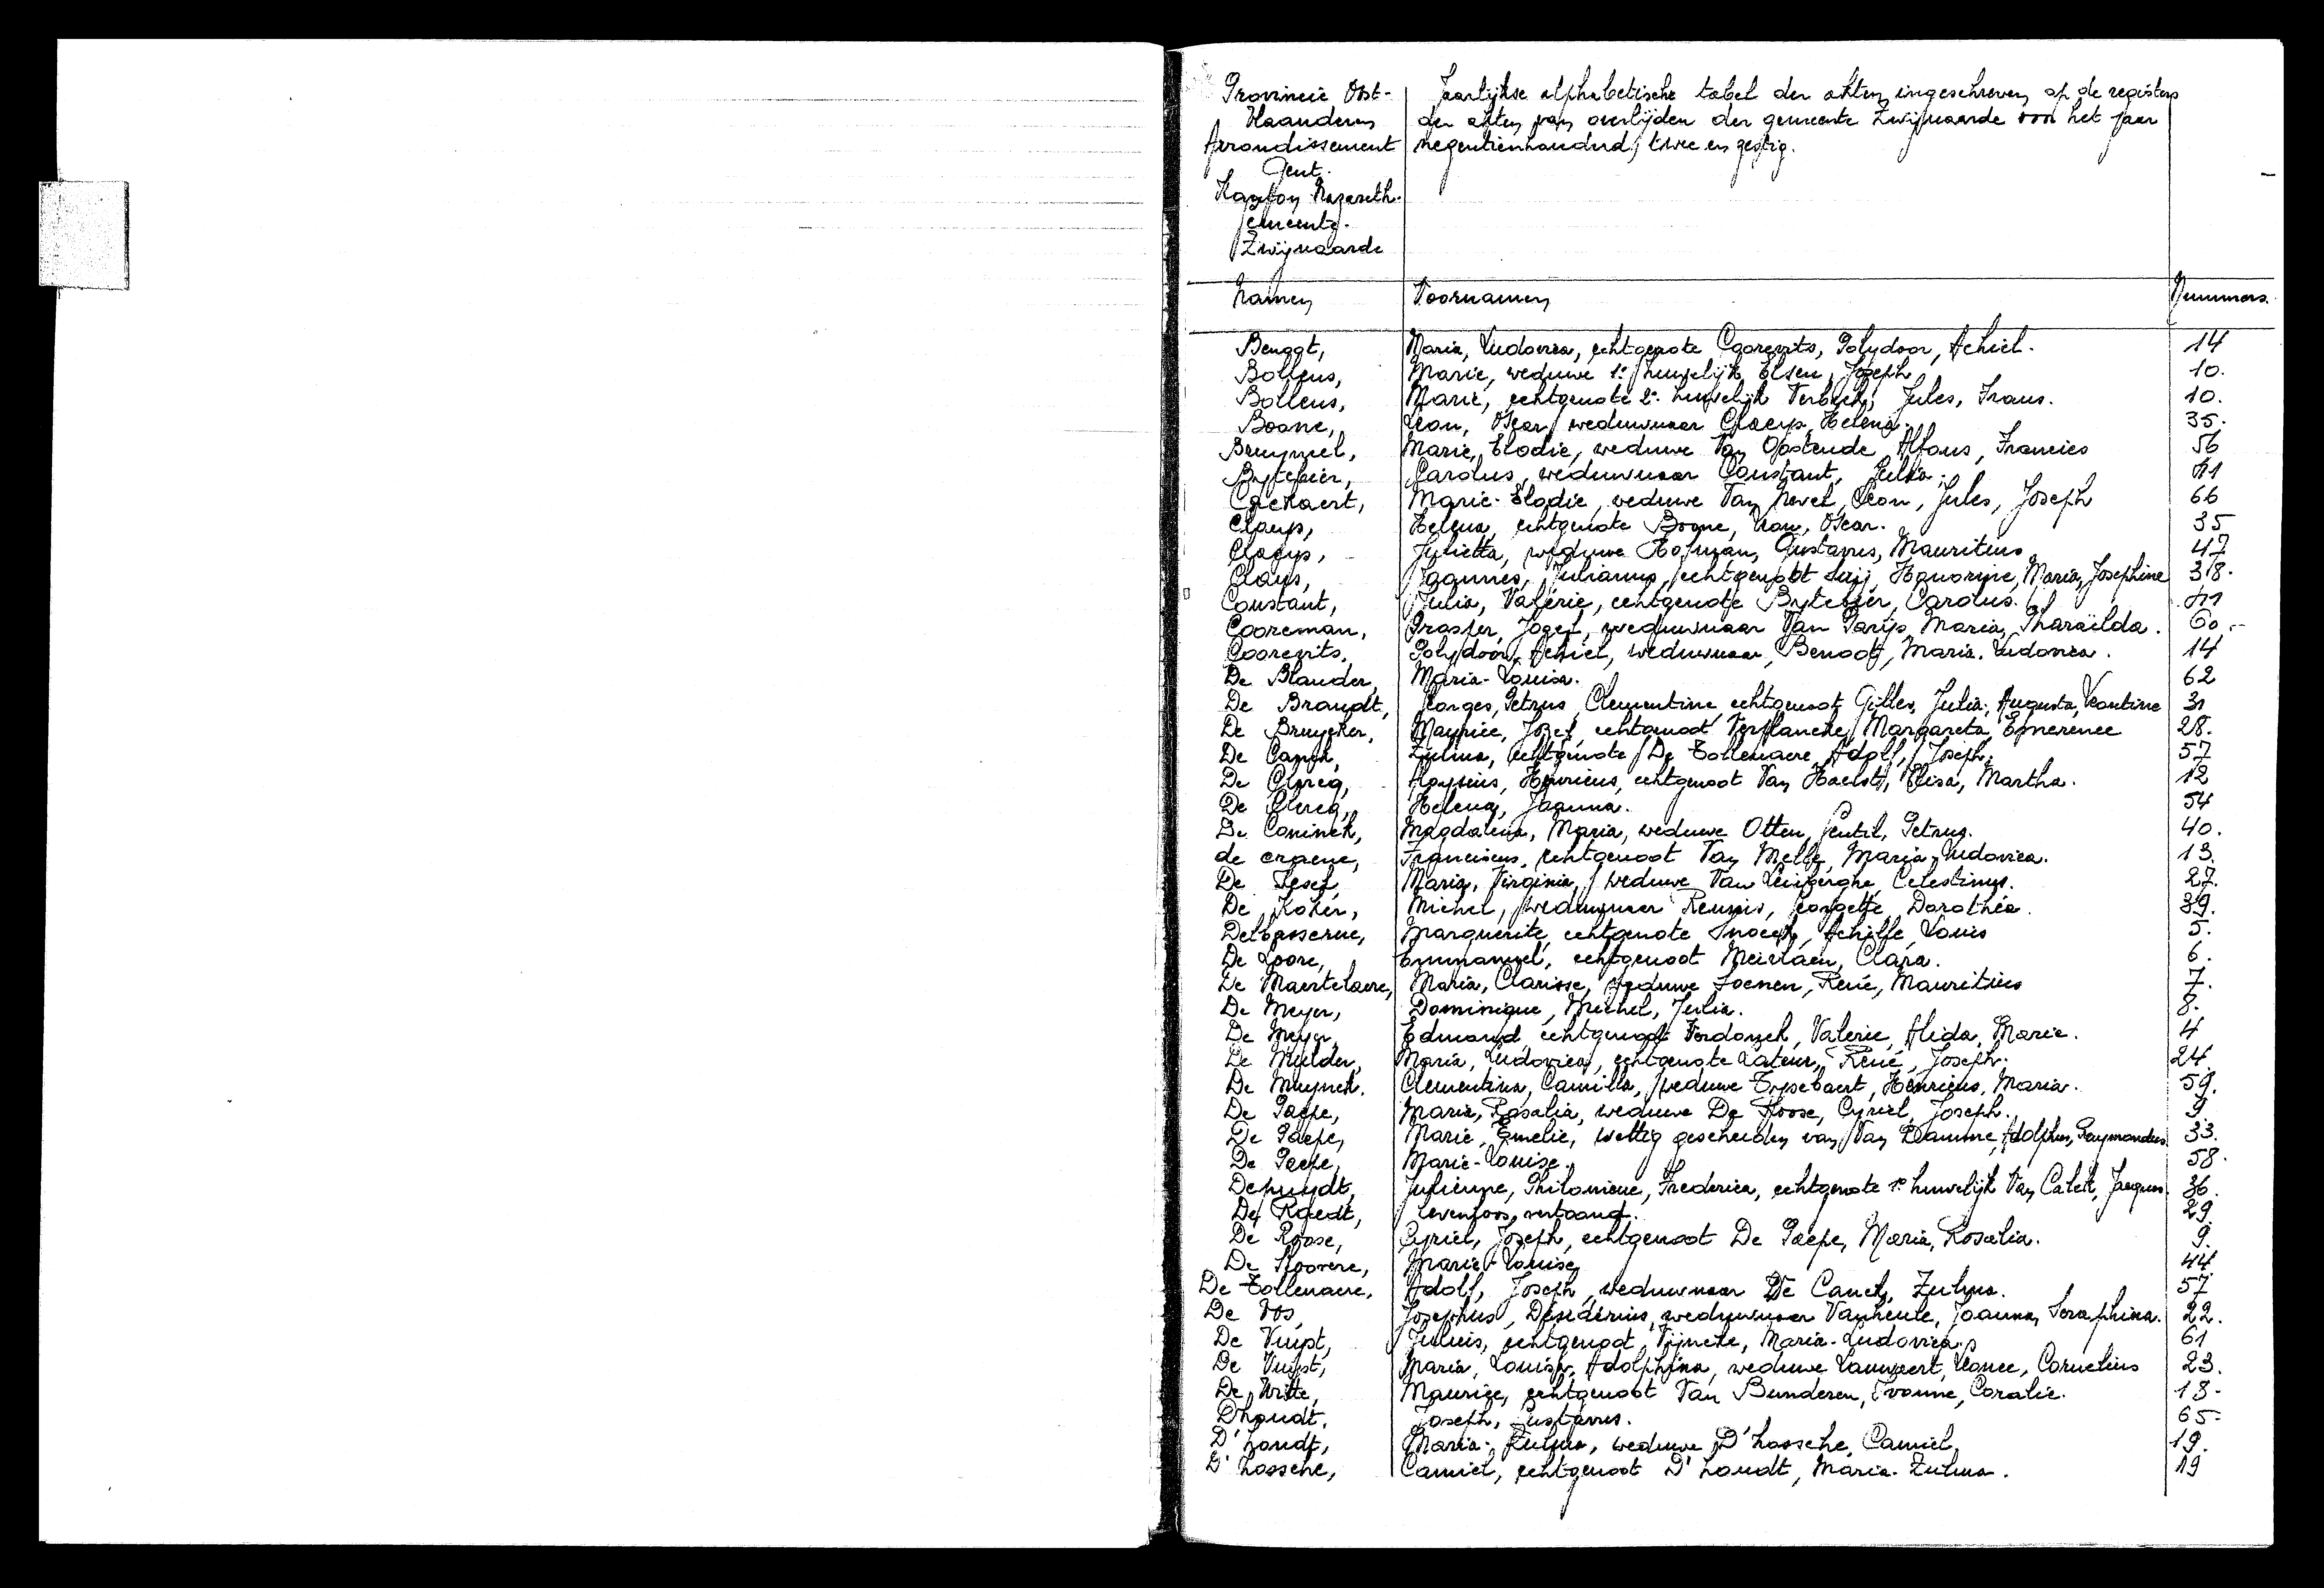 Provincie Oost-
Vlaanderen
Arrondissement
Gent.
Kanton Nazareth.
Gemeente.
Zwijnaarde
Jaarlijkse alphabetische tabel der akten ingeschreven op de registers
der akten van overlijden der gemeente Zwijnaarde voor het jaar
negentienhonderd twee en zestig.
Namen Voornamen Nummers.
Benoot, Maria, Ludovica, echtgenote Coorevits, Polydoor, Achiel. 14
Bolleus, Marie, weduwe 1e huwelijk Elsen, Joseph 10.
Bolleus, Marie, echtgenote 2e huwelijk Jules, Frans. 10.
Boone, Leon, Oscar weduwnaar Claeys, Helena. 35.
Bruyneel, Marie, Elodie, weduwe Van Oostende Alfons, Francies 56
Bytebier, Carolus, weduwnaar Constant, Julia. 41
Caekaert, Marie-Elodie, weduwe Van Nevel, Leon, Jules, Joseph 66
Claeys, Helena, echtgenote Boone, Leon, Oscar. 35
Claeys, Julietta, weduwe Hofman, Gustavus, Mauritius 47
Claus, Joannes, Julianus, echtgenoot Honorine, Maria, Josephine 38.
Constant, Julia, Valérie, echtgenote Bytebier, Carolus. 41
Cooreman, Prosper, Jozef, weduwnaar Van Parijs, Maria, Pharaïlda. 60.
Coorevits, Polydoor, Achiel, weduwnaar, Benoot, Maria. Ludovica. 14
De Blander, Maria-Louisa. 62
De Brandt, Georges, Petrus, Clementine echtgenoot Gilles, Julia, Augusta, Leontine 31
De Bruycker, Maurice, Jozef, echtgenoot Verplancke, Margareta, Emerence 28.
De Canck, Zulma, echtgenote De Tollenaere, Adolf, Joseph. 57
De Clercq, Aloysius, Henricus, echtgenoot Van Haelst, Elisa, Martha. 12
De Clercq, Helena, Joanna. 54
De Coninck, Magdalena, Maria, weduwe Otten, Gentil, Petrus. 40.
de craene, Franciscus, echtgenoot Van Melle, Maria-Ludovica. 13.
De Maria, Virginia, weduwe Van Celestinus. 27.
De Koker, Michel, weduwnaar Georgette, Dorothéa. 39.
Delbasserue, Marguerite, echtgenote Snoeck, Achille, Louis 5.
De Loore, Emmanuel, echtgenoot Meirlaen, Clara. 6.
De Maertelaere, Maria, Clarisse, weduwe Soenen, René, Mauritius 7.
De Meyer, Dominique, Michel, Julia. 8.
De Meyer, Edmond, echtgenoot Verdonck, Valerie, Alida, Marie. 4
De Mulder, Maria, Ludovica, echtgenote Lateur, René, Joseph. 24.
De Muynck. Clementina, Camilla, weduwe Tysebaert, Henricus, Maria. 59.
De Paepe, Maria, Rosalia, weduwe De Roose, Cyriel, Joseph. 9
De Paepe, Marie, Emelie, wettig gescheiden van Van Damme, Adolphus, Raymondus 33.
De Paepe, Marie-Louise. 58.
Depuydt, Julienne, Philomene, Frederica, echtgenote 1e huwelijk Van Jacques. 36.
De Raedt, Levenloos, vertoond. 29
De Roose, Cyriel, Joseph, echtgenoot De Paepe, Maria, Rosalia. 9.
De Roovere, Marie-Louise 44
De Tollenaere, Adolf, Joseph, weduwnaar De Canck, Zulma. 57
De Vos, Josephus, Désidérius, weduwnaar Vanheule, Joanna, Seraphina. 22.
De Vuyst, Julius, echtgenoot Maria-Ludovica. 61
De Vuyst, Maria, Louisa, Adolphina, weduwe Lauwaert, Leonce, Cornelius 23.
De Witte, Maurice, echtgenoot Van Bunderen, Yvonne, Coralie. 18.
Dhondt, Joseph, Gustavus. 65.
D'hondt, Maria-Zulma, weduwe D'hossche, Camiel. 19.
D'hossche, Camiel, echtgenoot D'hondt, Maria-Zulma. 19